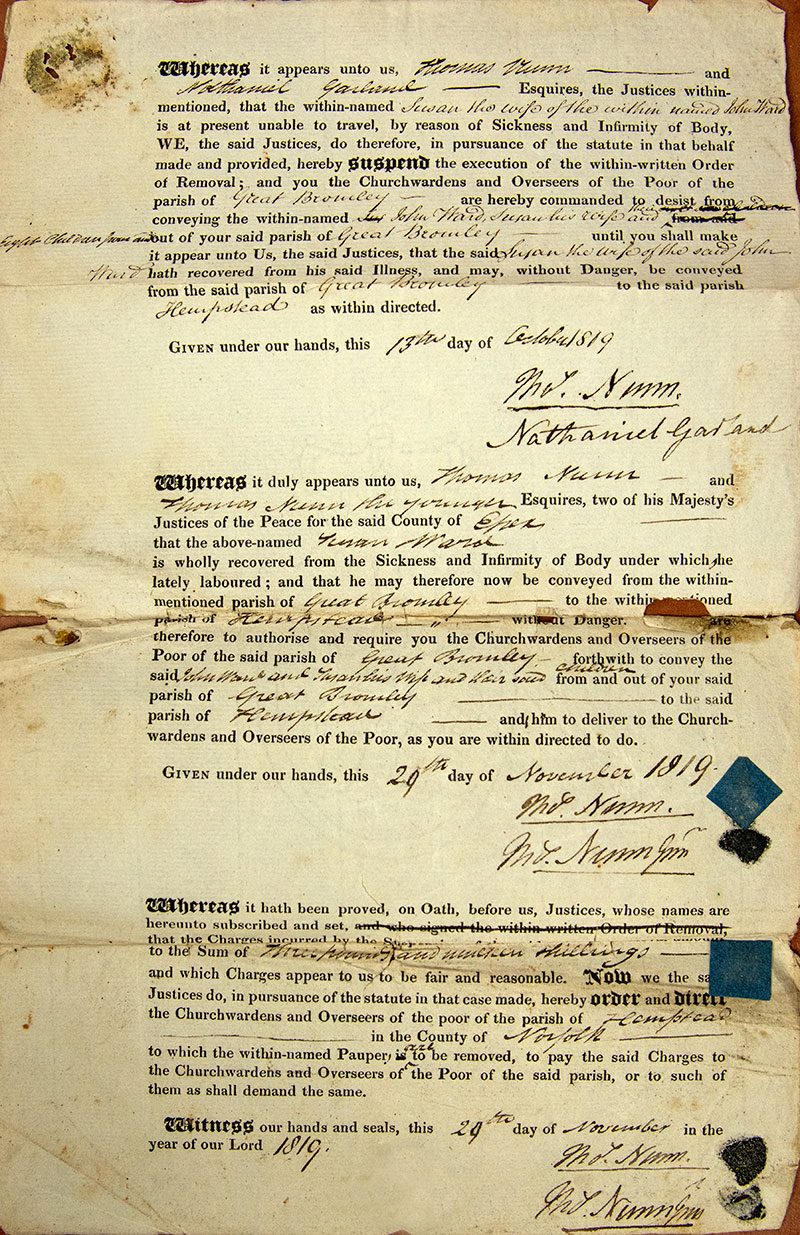 Whereas it appears unto us, Thomas Nunn and
Nathaniel Garland Esquires, the Justices within-
mentioned, that the within-named Susan the wife of the within named John Ward
is at present unable to travel, by reason of Sickness and Infirmity of Body,
WE, the said Justices, do therefore, in pursuance of the statute in that behalf
made and provided, hereby suspend the execution of the within-written Order
of Removal; and you the Churchwardens and Overseers of the Poor of the
parish of Great Bromley are hereby commanded to desist from
conveying the within-named John Ward, Susan his wife and their from and
Eight Children from and out of your said parish of Great Bromley until you shall make
it appear unto Us, the said Justices, that the said Susan the wife of the said John
Ward hath recovered from his said Illness, and may, without Danger, be conveyed
from the said parish of Great Bromley to the said parish
Hempstead as within directed.
GIVEN under our hands, this 13th day of October 1819
Thos. Nunn.
Nathaniel Garland
Whereas it duly appears unto us, Thomas Nunn and
Thomas Nunn the younger Esquires, two of his Majesty's
Justices of the Peace for the said County of Essex
that the above-named Susan Ward
is wholly recovered from the Sickness and Infirmity of Body under which she
lately laboured; and that he may therefore now be conveyed from the within-
mentioned parish of Great Bromley to the within mentioned
parish of Hempstead without Danger. are
therefore to authorise and require you the Churchwardens and Overseers of the
Poor of the said parish of Great Bromley forthwith to convey the
said John Ward and Susan his wife and their said children from and out of your said
parish of Great Bromley to the said
parish of Hempstead and him to deliver to the Church-
wardens and Overseers of the Poor, as you are within directed to do.
GIVEN under our hands, this 29th day of November 1819.
Thos. Nunn.
Thos. Nunn Junr
Whereas it hath been proved, on Oath, before us, Justices, whose names are
hereunto subscribed and set, and who signed the within-written Order of Removal,
that the Charges incurred by the
to the Sum of Three pounds and nineteen shillings
and which Charges appear to us to be fair and reasonable. Now we the said
Justices do, in pursuance of the statute in that case made, hereby order and direct
the Churchwardens and Overseers of the poor of the parish of Hempstead
in the County of Norfolk
to which the within-named Paupers is are to be removed, to pay the said Charges to
the Churchwardens and Overseers of the Poor of the said parish, or to such of
them as shall demand the same.
Witness our hands and seals, this 29th day of November in the
year of our Lord 1819.
Thos. Nunn.
Thos. Nunn Junr